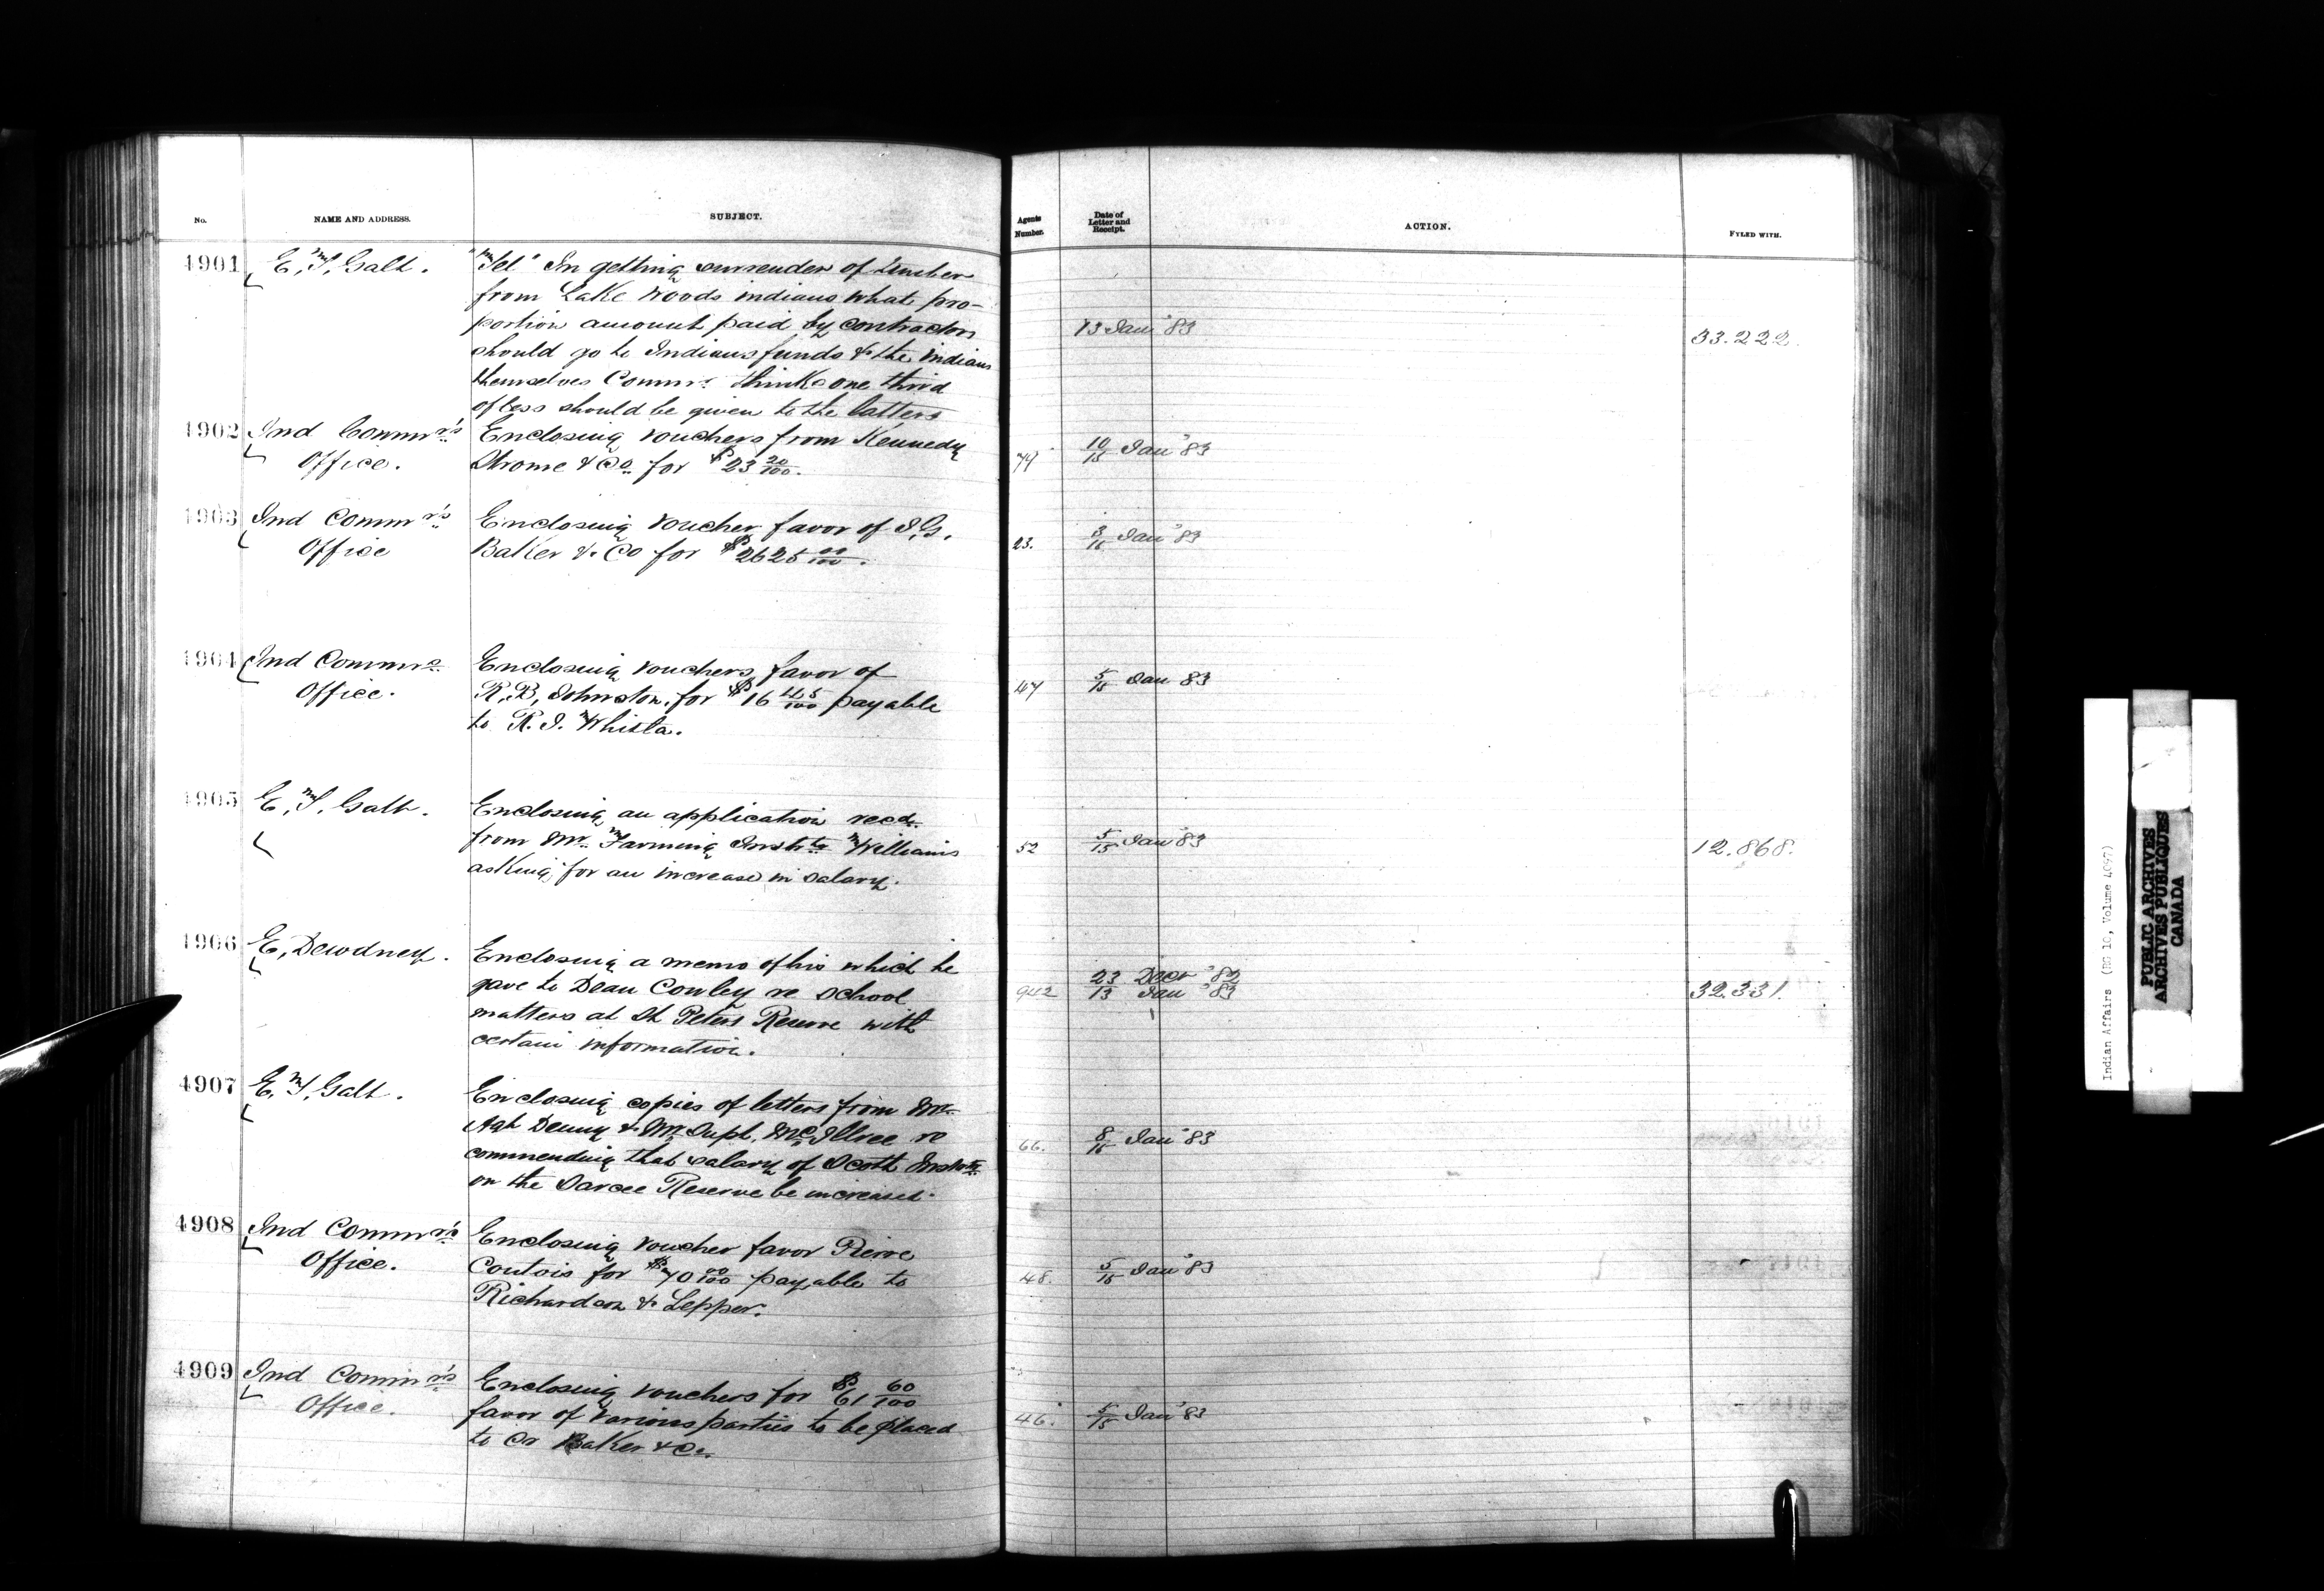 No. NAME AND ADDRESS. SUBJECT. Agents Number. Date of Letter and Receipt. ACTION. FYLED WITH.
4901 E. T. Galt. "Tel" In getting surrender of timber
from Lake Woods indians what pro-
portion amount paid by contractors
should go to Indians funds & the indians 13 Jan '83 33.222.
themselves Commr. thinks one third
of less should be given to the latters
4902 Ind Commr's Enclosing vouchers from Kennedy
Office. Strome & Co for $23 20/100. 79 10/15 Jan '83
4903 Ind Commr's Enclosing voucher favor of I. G.
Office Baker & Co for $2625 00/100. 23. 3/15 Jan '83
4904 Ind Commrs Enclosing vouchers favor of
Office. R. B. Johnston. for $16 45/100 payable 47 5/15 Jan 83
to R. J. Whitla.
4905 E. T. Galt. Enclosing an application recd.
from Mr. Farming Instr Williams 52 5/15 Jan '83 12.868.
asking for an increase in salary.
4906 E. Dewdney. Enclosing a memo of his which he
gave to Dean Cowley re school 942 23 Decr '82 32.331.
13 Jan '83
matters at St Peters Reserve with
certain information.
4907 E. T. Galt. Enclosing copies of letters from Mr.
Agt Denny & Mr Supt. McIllree re 66. 8/15 Jan '83
commending that salary of Scott Instr
on the Sarcee Reserve be increased.
4908 Ind Commr's Enclosing voucher favor Pierre
Office. Contois for $70 00/100 payable to 48. 5/15 Jan '83
Richardson & Lepper.
4909 Ind Commr's Enclosing vouchers for $61 60/100
Office. favor of various parties to be placed 46. 5/15 Jan '83
to Cr Baker & Co.
Indian Affairs (RG 10, Volume 4097)
PUBLIC ARCHIVES
ARCHIVES PUBLIQUES
CANADA